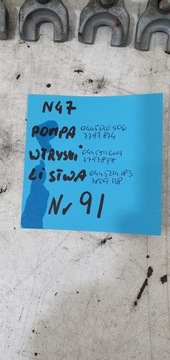 N47
POMPA 0445010506
7797874
WTRYSKI
7797877
LISTWA 0445214183
7809128
Nr 91